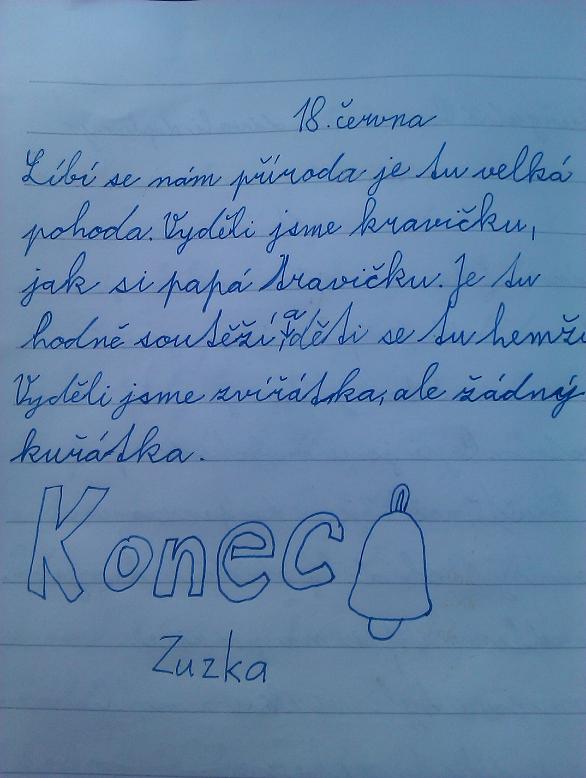 18. června
Líbí se nám příroda je tu velká
pohoda. Vyděli jsme kravičku,
jak si papá travičku. Je tu
hodně soutěží a děti se tu hemží
Vyděli jsme zvířátka, ale žádný
kuřátka.
Konec
Zuzka